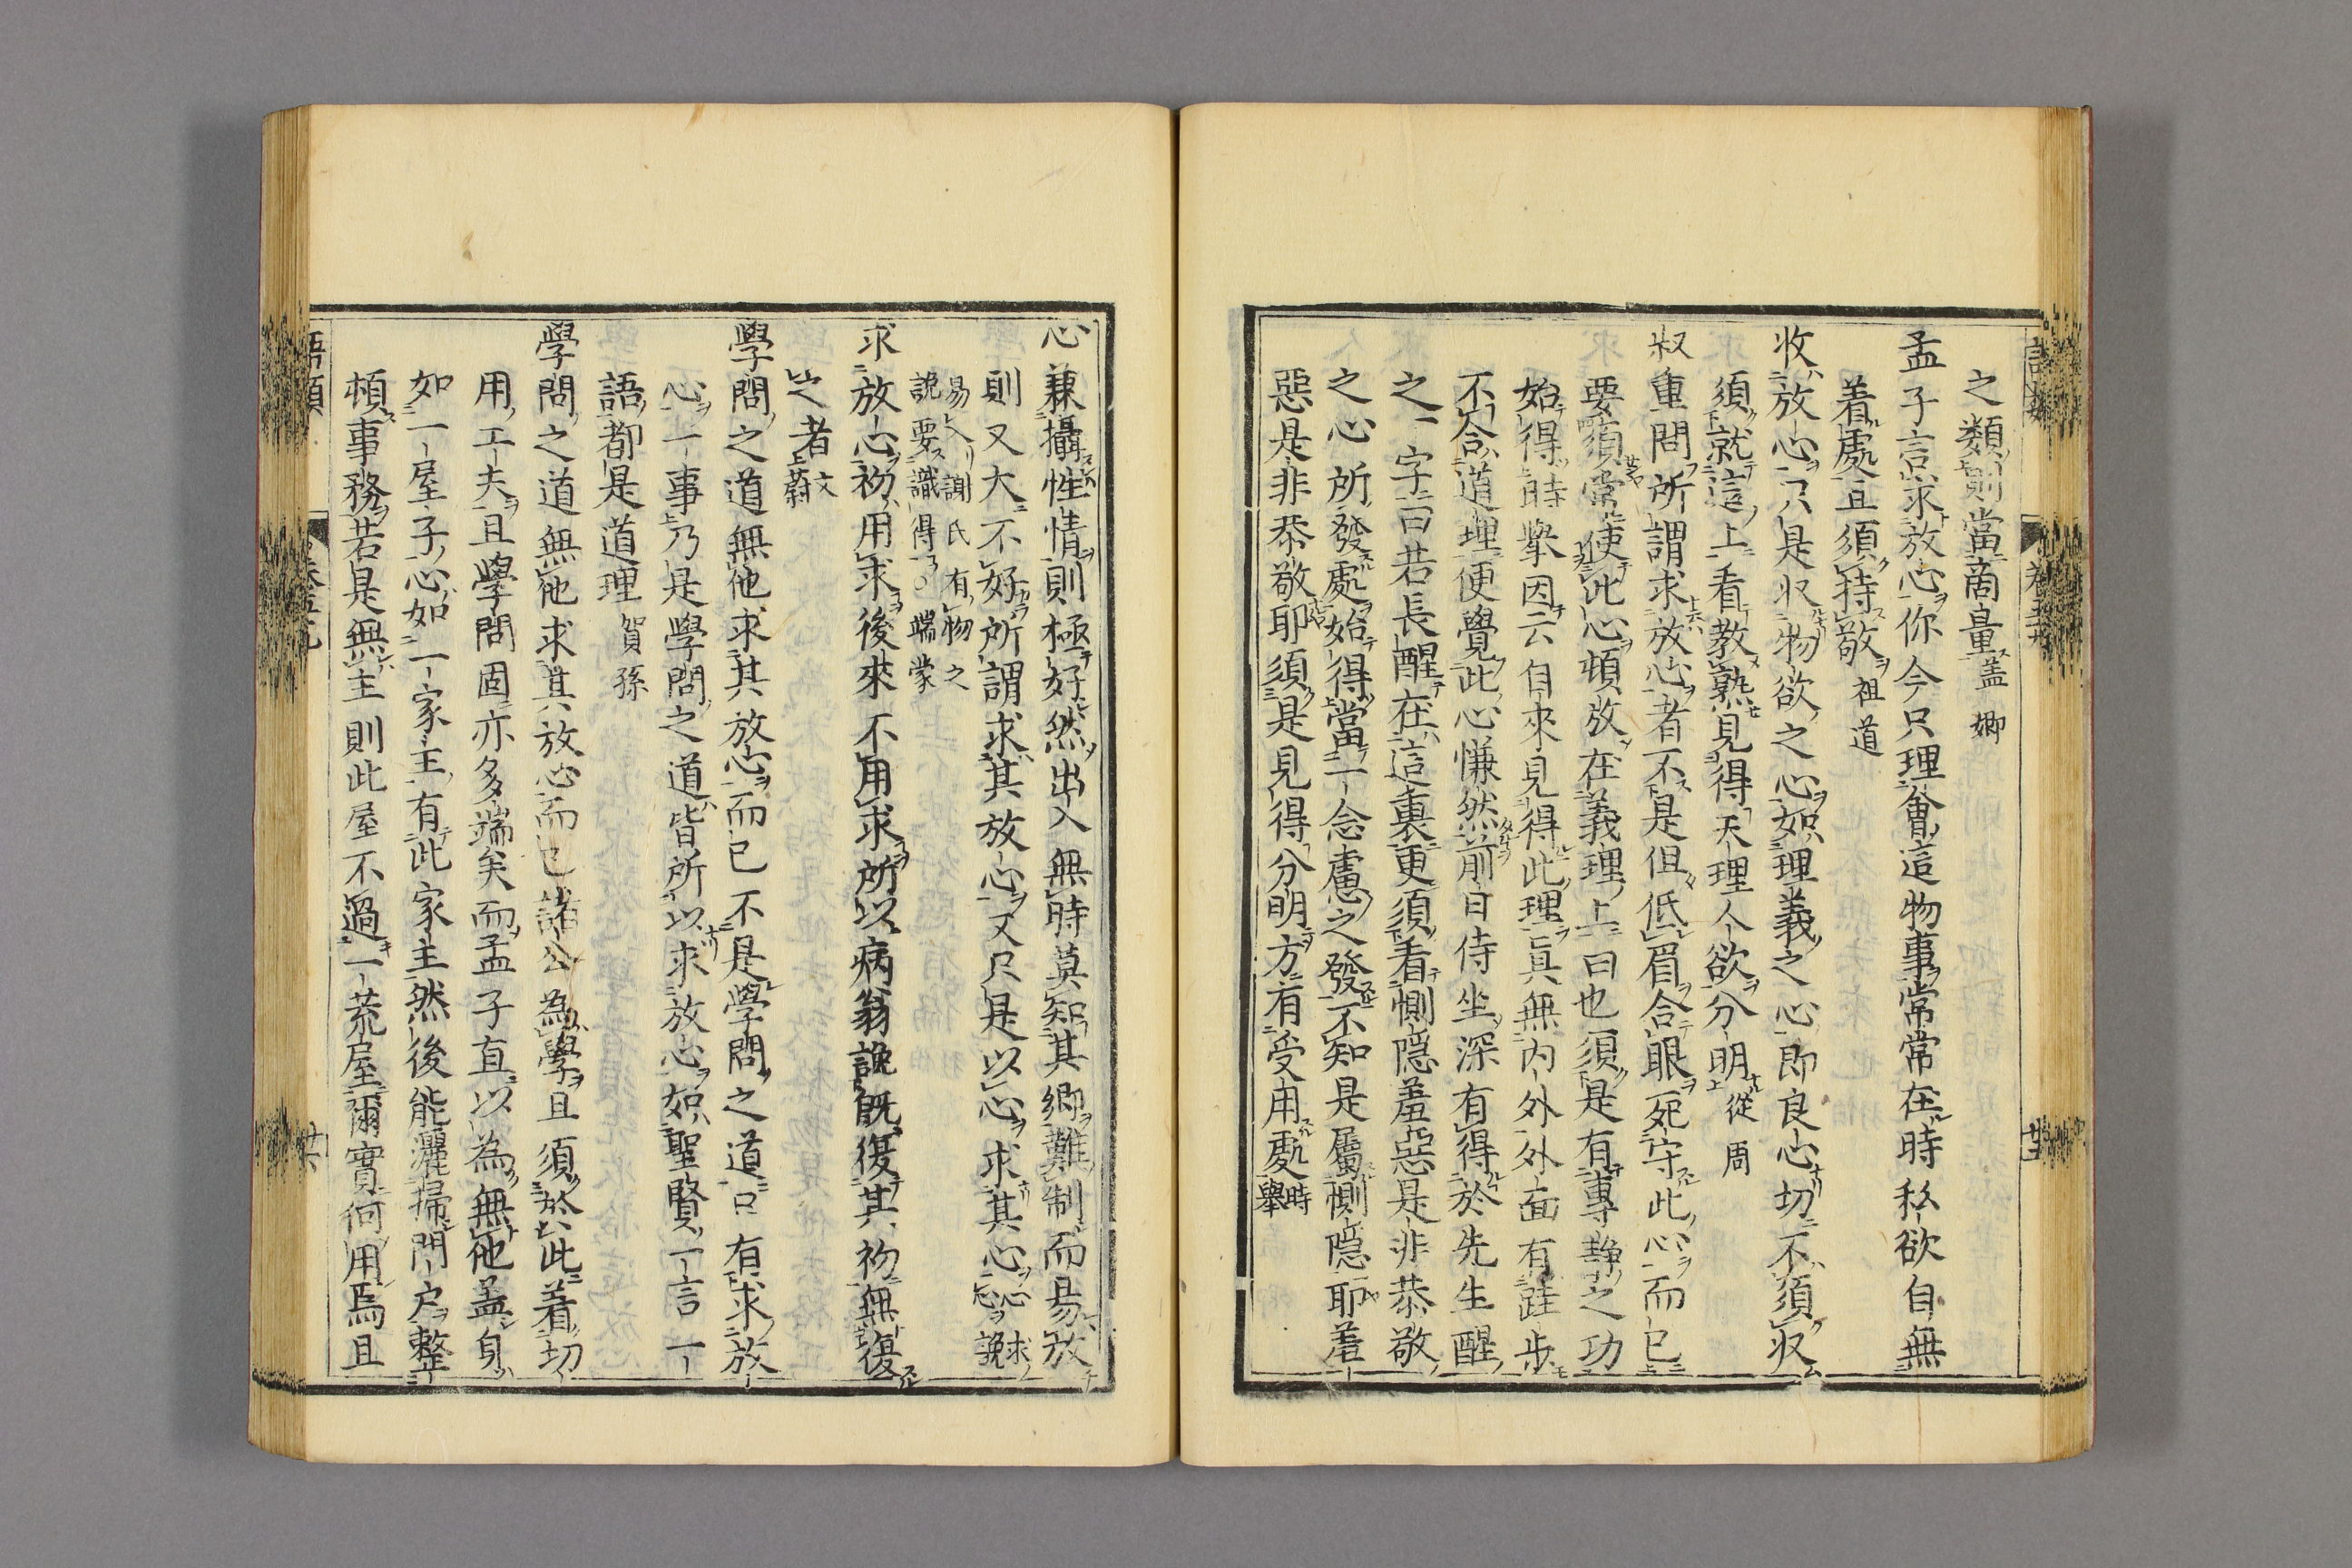 之類則當商量蓋卿
孟子言求放心你今只理會這物事常常在時私欲自無
着處且須持敬祖道
收放心只是收物欲之心如理義之心即良心切不須收
須就這上看教熟見得天理人欲分明從周
叔重問所謂求放心者不是但低眉合眼死守此心而已
要須常使此心頓放在義理上曰也須是有專靜之功
始得時舉因云自來見得此理真無內外外面有跬步
不合道理便覺此心慊然前日侍坐深有得於先生醒
之一字曰若長醒在這裏更須看惻隱羞惡是非恭敬
之心所發處始得當一念慮之發不知是屬惻隱耶羞
惡是非恭敬耶須是見得分明方有受用處時舉
心兼攝性情則極好然出入無時莫知其鄉難制而易放
則又大不好所謂求其放心又只是以心求其心心求心說
易入謝氏有物之
說要識得端蒙
求放心初用求後來不用求所以病翁說既復其初無復
之者文蔚
學問之道無他求其放心而已不是學問之道只有求放
心一事乃是學問之道皆所以求放心如聖賢一言一
語都是道理賀孫
學問之道無他求其放心而已諸公為學且須於此着切
用工夫且學問固亦多端矣而孟子直以為無他蓋身
如一屋子心如一家主有此家主然後能灑掃門戶整
頓事務若是無主則此屋不過一荒屋爾實何用焉且
語類 卷五十九 廿六